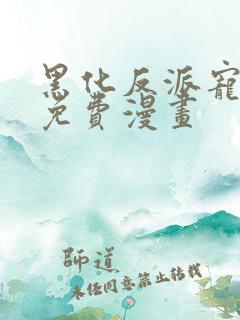 黑化反派寵
免費漫畫
師道
未經同意禁止轉載